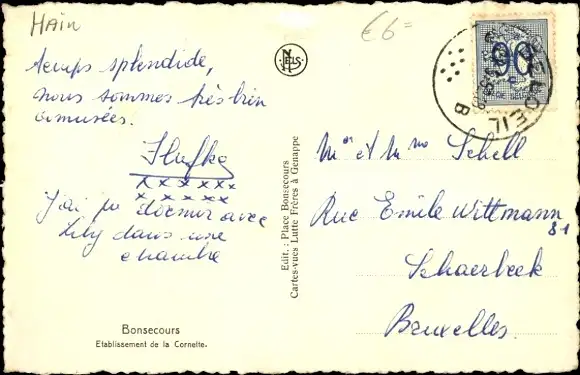 HAIN
€6=
temps splendide,
nous sommes très bien
amusées.
x x x x x x
x x x x x x
J'ai pu dormir avec
Lily dans une
chambre
Bonsecours
Etablissement de la Cornette.
NELS
Edit. : Place Bonsecours
Cartes-vues Lutte Frères à Genappe
90
OEIL
B
Mr et Mme Schell
Rue Emile Wittmann
81
Schaerbeek
Bruxelles.